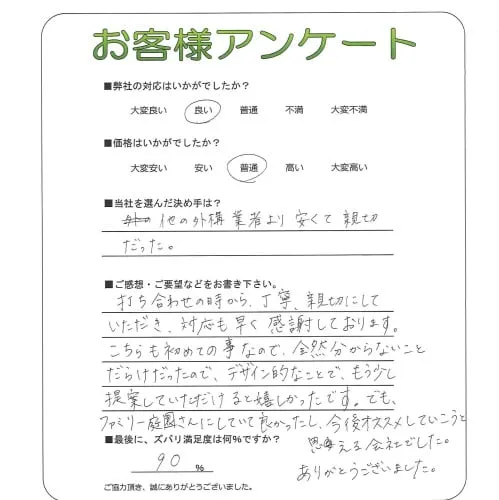 お客様アンケート
■弊社の対応はいかがでしたか？
大変良い 良い 普通 不満 大変不満
■価格はいかがでしたか？
大変安い 安い 普通 高い 大変高い
■当社を選んだ決め手は？
他の外構業者より安くて親切
だった。
■ご感想・ご要望などをお書き下さい。
打ち合わせの時から、丁寧、親切にして
いただき、対応も早く感謝しております。
こちらも初めての事なので、全然分からないこと
だらけだったので、デザイン的なことで、もう少し
提案していただけると嬉しかったです。でも、
ファミリー庭園さんにしていて良かったし、今後オススメしていこうと
思える会社でした。
ありがとうございました。
■最後に、ズバリ満足度は何%ですか？
90 %
ご協力頂き、誠にありがとうございました。